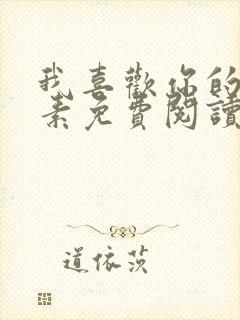 我喜歡你的
素免費閱讀
道依茨